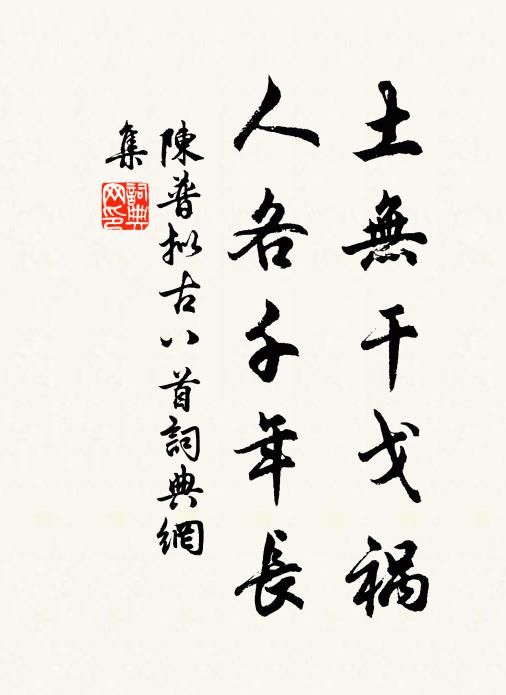 土無干戈祸
人各千年長
陳普拟古八首詞典網
集
詞典
网印